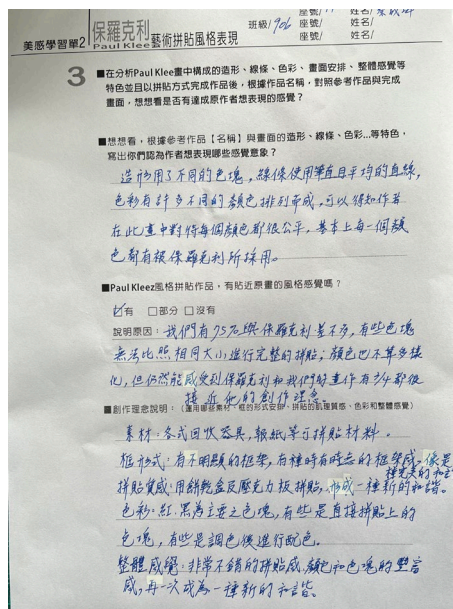 座號/11 姓名/
美感學習單2 保羅克利 Paul Klee 藝術拼貼風格表現 班級/906 座號/ 姓名/
座號/ 姓名/
3 ■在分析Paul Klee畫中構成的造形、線條、色彩、畫面安排、整體感覺等
特色並且以拼貼方式完成作品後，根據作品名稱，對照參考作品與完成
畫面，想想看是否有達成原作者想表現的感覺？
■想想看，根據參考作品【名稱】與畫面的造形、線條、色彩...等特色，
寫出你們認為作者想表現哪些感覺意象？
造形用了不同的色塊，線條使用筆直且平均的直線，
色彩有許多不同的顏色排列而成，可以得知作者
在此畫中對待每個顏色都很公平，基本上每一個顏
色都有被保羅克利所採用。
■Paul Kleez風格拼貼作品，有貼近原畫的風格感覺嗎？
☑有 □部分 □沒有
說明原因：我們有75%與保羅克利差不多，有些色塊
無法比照相同大小進行完整的拼貼；顏色也不算多樣
化，但仍然能感受到保羅克利和我們的畫作有3/4都很
接近他的創作理念。
■創作理念說明：（運用哪些素材、框的形式安排、拼貼的肌理質感、色彩和整體感覺）
素材：各式回收容具，報紙等可拼貼材料。
框形式：有不明顯的框架，有種時有時忘的框架感，像是
種完美的和諧
拼貼質感：用餅乾盒及壓克力板拼貼，形成一種新的和諧。
色彩：紅、黑為主要之色塊，有些是直接拼貼上的
色塊，有些是調色後進行配色。
整體感覺：非常不錯的拼貼感，顏色和色塊的豐富
感，再一次成為一種新的和諧。